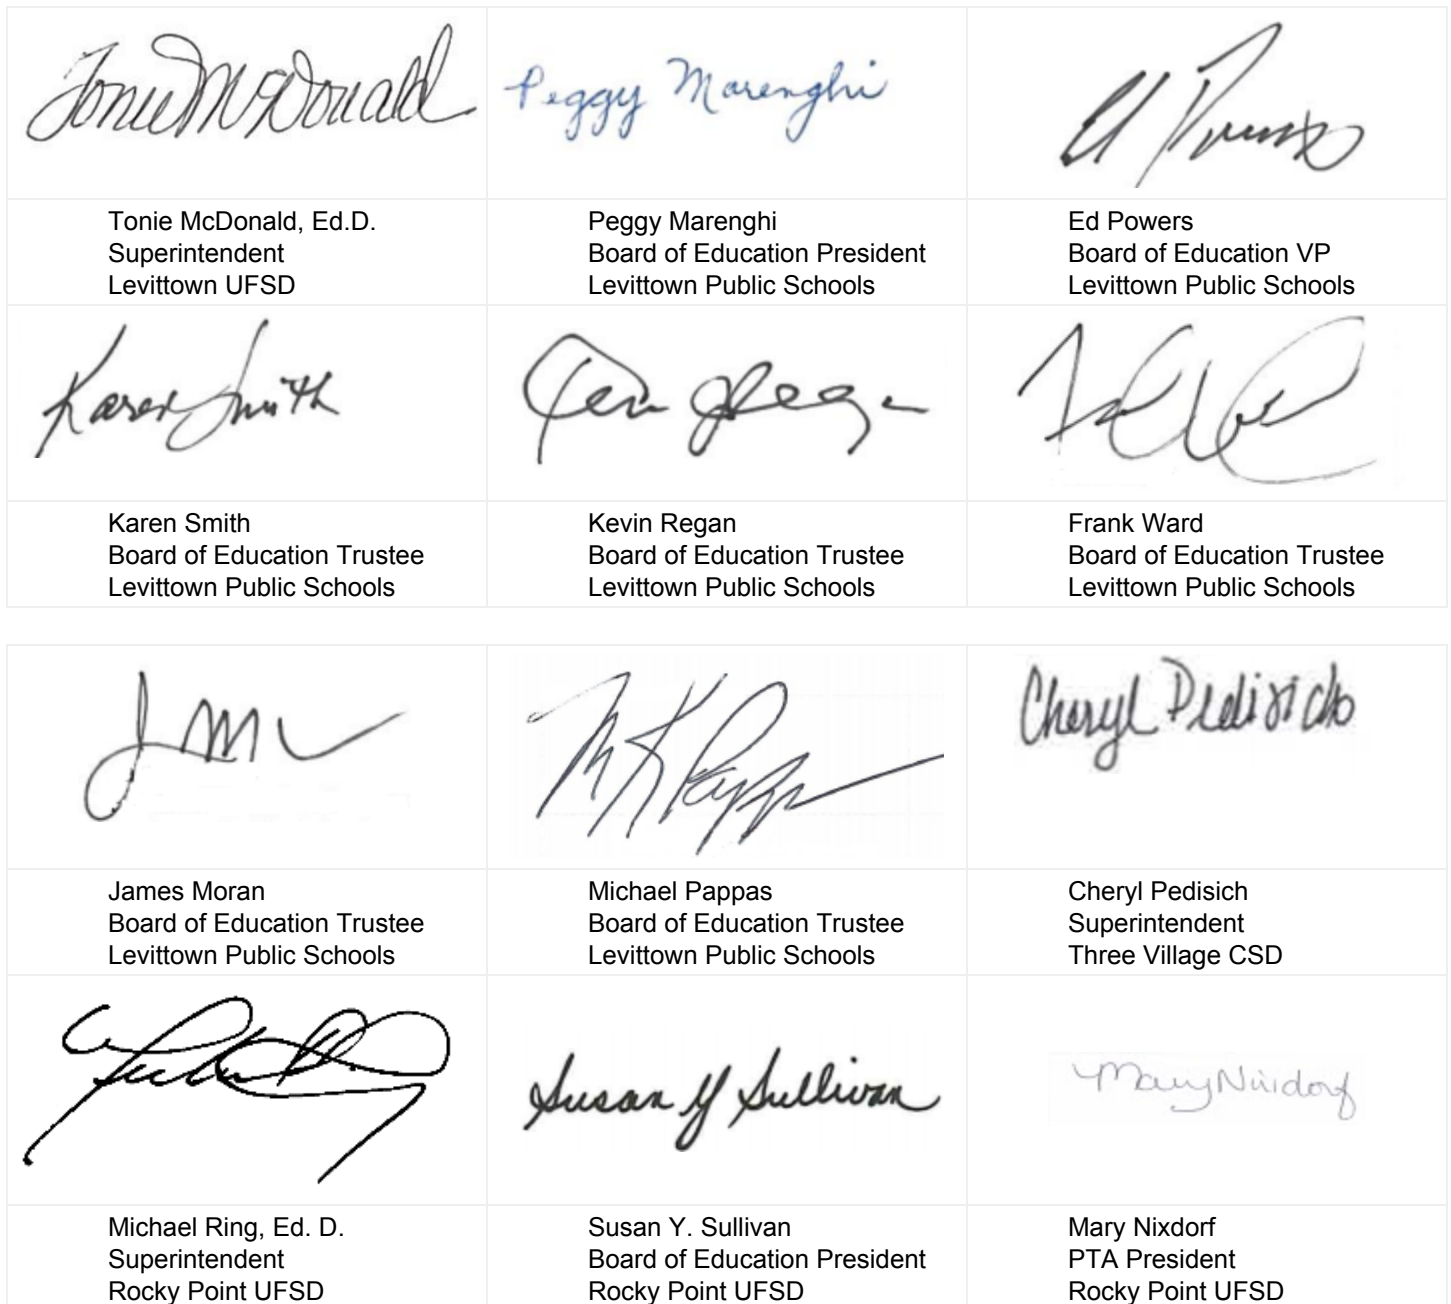 Tonie McDonald
Peggy Marenghi
Ed Powers
Tonie McDonald, Ed.D.
Superintendent
Levittown UFSD
Peggy Marenghi
Board of Education President
Levittown Public Schools
Ed Powers
Board of Education VP
Levittown Public Schools
Karen Smith
Karen Smith
Board of Education Trustee
Levittown Public Schools
Kevin Regan
Board of Education Trustee
Levittown Public Schools
Frank Ward
Board of Education Trustee
Levittown Public Schools
Cheryl Pedisich
James Moran
Board of Education Trustee
Levittown Public Schools
Michael Pappas
Board of Education Trustee
Levittown Public Schools
Cheryl Pedisich
Superintendent
Three Village CSD
Susan Y Sullivan
Mary Nixdorf
Michael Ring, Ed. D.
Superintendent
Rocky Point UFSD
Susan Y. Sullivan
Board of Education President
Rocky Point UFSD
Mary Nixdorf
PTA President
Rocky Point UFSD